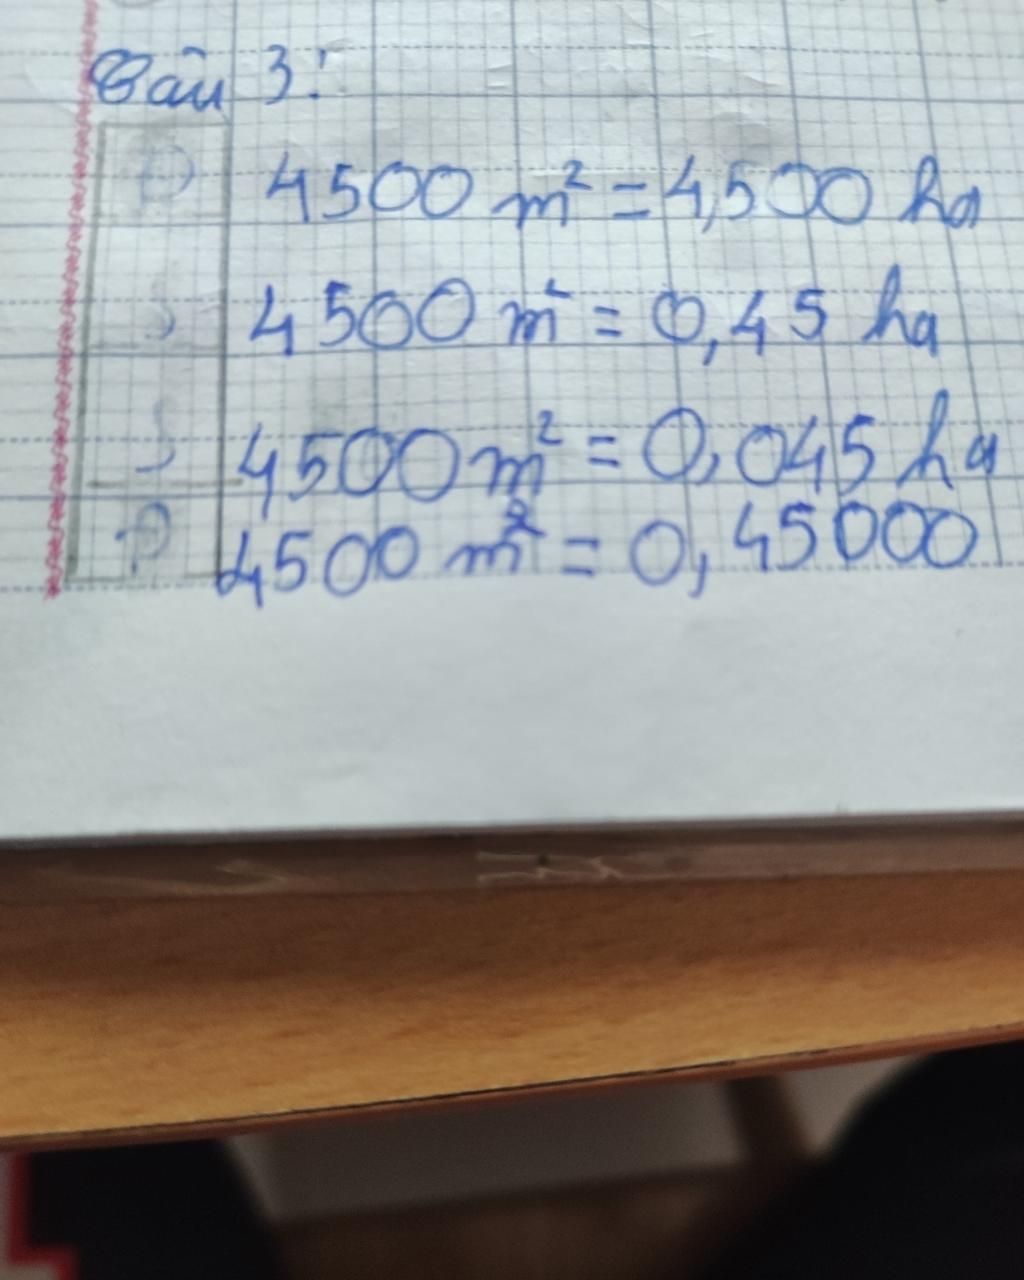 Câu 3:
Đ 4500 m² = 4,500 ha
S 4500 m² = 0,45 ha
S 4500 m² = 0,045 ha
Đ 4500 m² = 0,45000